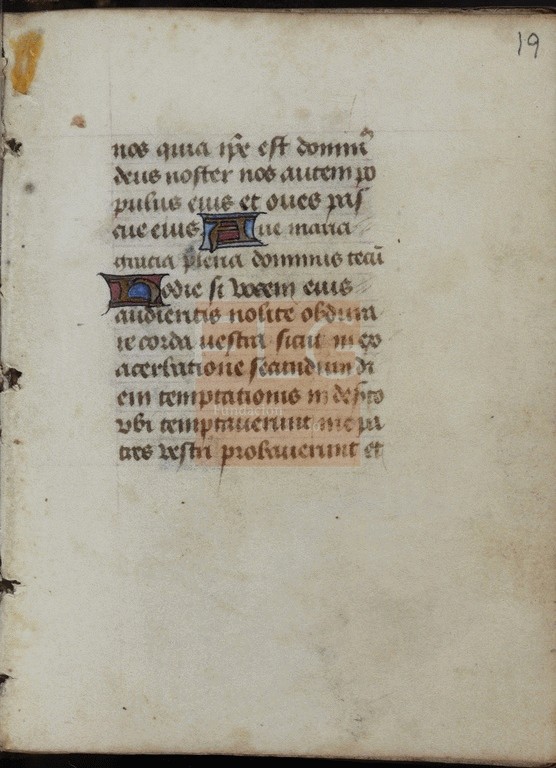 19
nos quia ip̅e est dominꝰ
deus noster nos autem po
pulus eius et oues pas
cue eius Aue maria
gracia plena dominus tecū
Hodie si vocem eius
audieritis nolite obdura
re corda uestra sicut in ex
acerbatione secundum di
em temptationis in des̅to
vbi temptauerunt me pa
tres vestri probauerunt et
FLG
Fundación